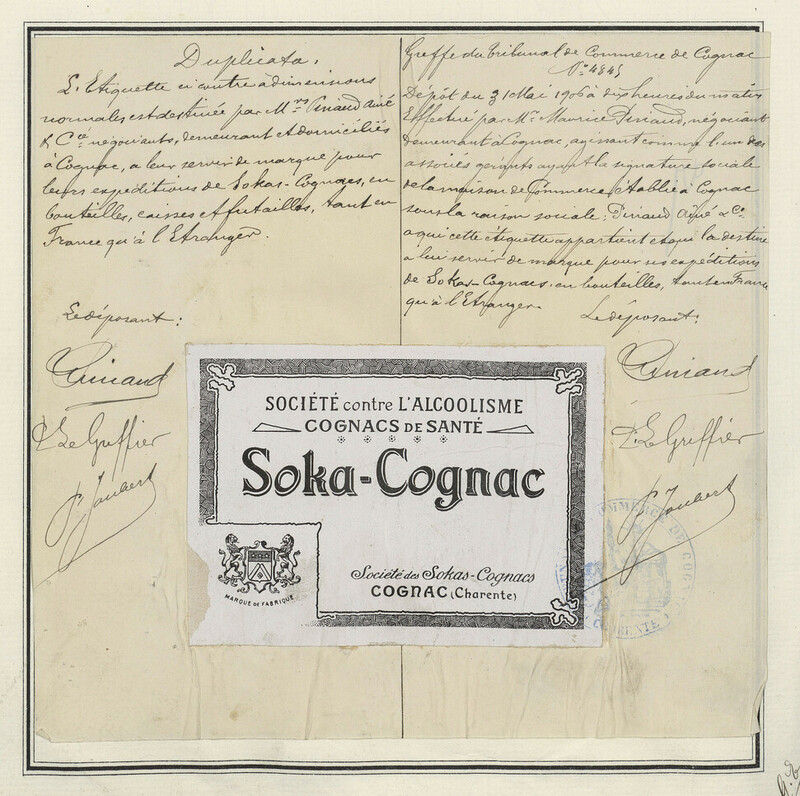 Duplicata.
L'Etiquette ci contre à dimensions
normales est destinée par Mrs Pinaud Ainé
& Cie négociants, demeurant et domiciliés
à Cognac, a leur servir de marque pour
leurs expéditions de Sokas-Cognacs, en
bouteilles, caisses et futailles, tant en
France qu'à l'Etranger.
Le déposant:
Pinaud
P. Le Greffier
P. Joubert
Greffe du Tribunal de Commerce de Cognac
No 4845
Dépôt du 31 Mai 1906 à dix heures du matin
Effectué par Mr. Maurice Pinaud, négociant
demeurant à Cognac, agissant comme l'un des
associés gérants ayant la signature sociale
de la maison de Commerce établie à Cognac
sous la raison sociale: Pinaud Aîné & Co.
a qui cette étiquette appartient et qui la destine
a lui servir de marque pour ses expéditions
de Sokas-Cognacs, en bouteilles, tant en France
qu'à l'Etranger.
Le déposant:
Pinaud
P. Le Greffier
P. Joubert
SOCIÉTÉ contre L'ALCOOLISME
COGNACS DE SANTÉ
Soka-Cognac
MARQUE DE FABRIQUE
Société des Sokas-Cognacs
COGNAC (Charente)
COMMERCE DE COGNAC